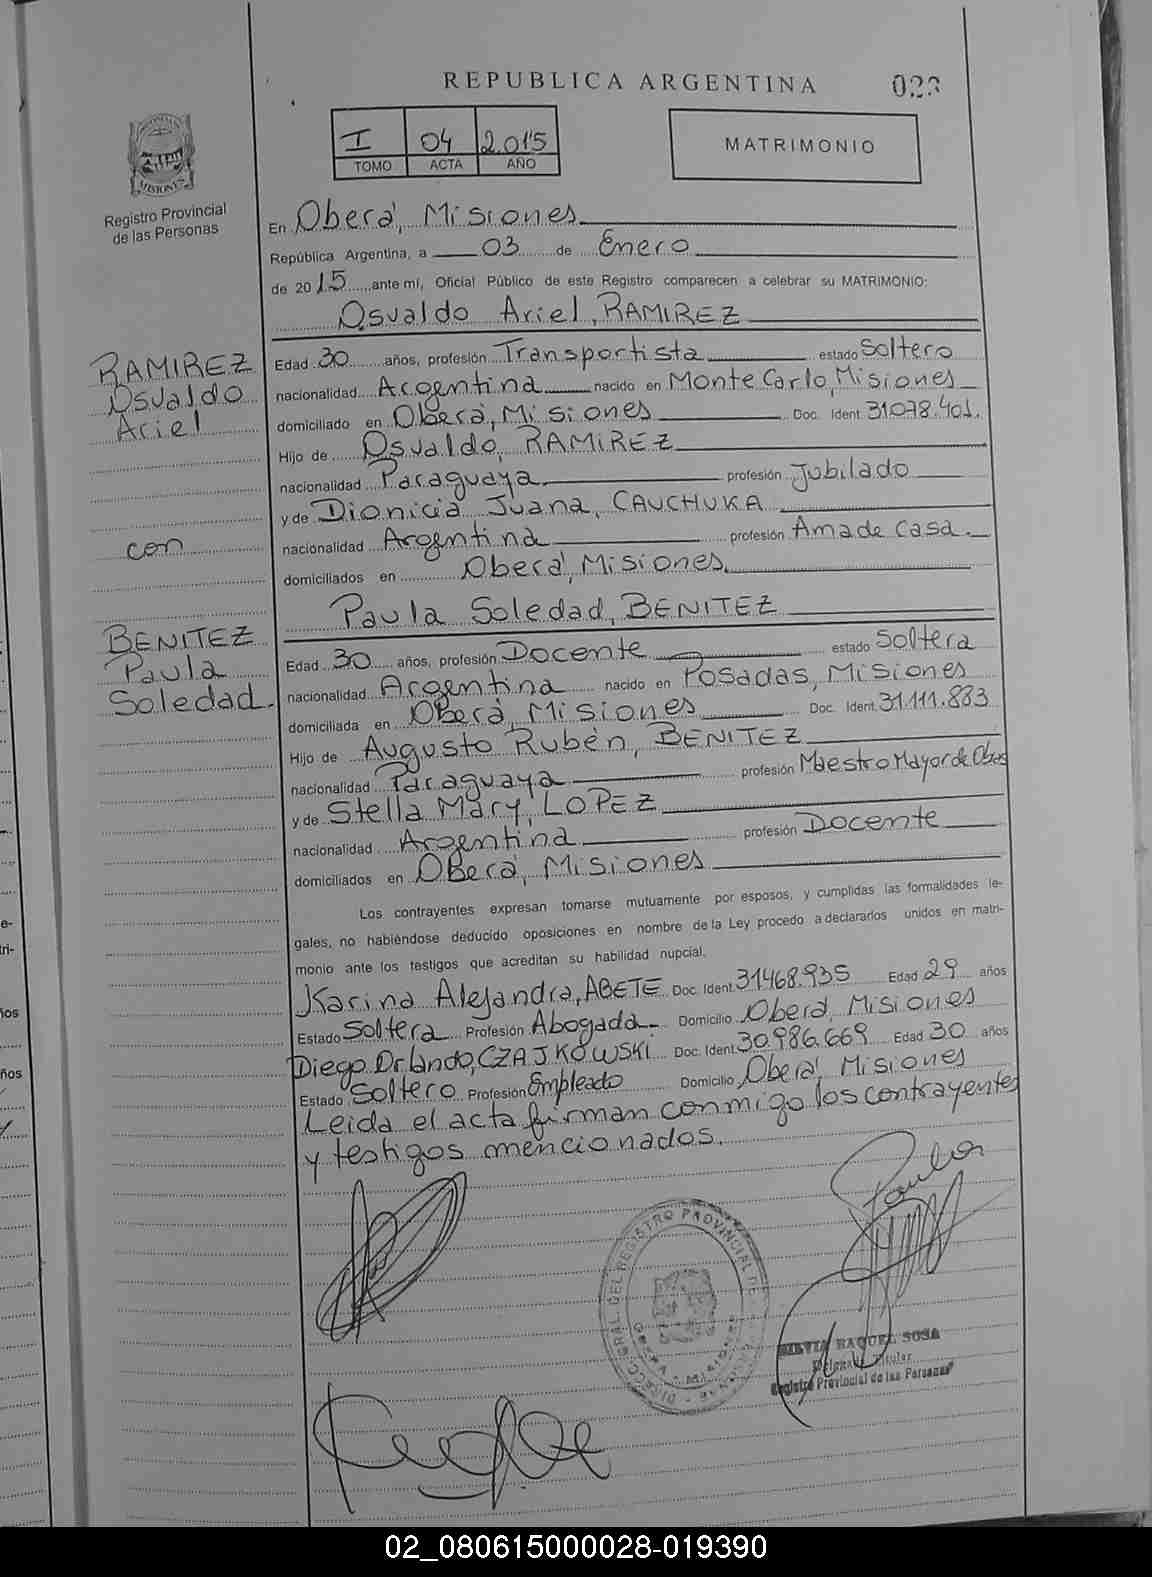 REPUBLICA ARGENTINA
023
I 04 2.015
TOMO ACTA AÑO
MATRIMONIO
MISIONES
Registro Provincial
de las Personas
En Oberá, Misiones
República Argentina, a 03 de Enero
de 2015 ante mí, Oficial Público de este Registro comparecen a celebrar su MATRIMONIO:
Osvaldo Ariel, RAMIREZ
RAMIREZ
Osvaldo
Ariel
con
BENITEZ
Paula
Soledad.
Edad 30 años, profesión Transportista estado Soltero
nacionalidad Argentina nacido en Monte Carlo, Misiones
domiciliado en Oberá, Misiones Doc. Ident. 31.078.401.
Hijo de Osvaldo, RAMIREZ
nacionalidad Paraguaya profesión Jubilado
y de Dionicia Juana, CAUCHUKA
nacionalidad Argentina profesión Ama de casa.
domiciliados en Oberá, Misiones.
Paula Soledad, BENITEZ
Edad 30 años, profesión Docente estado Soltera
nacionalidad Argentina nacido en Posadas, Misiones
domiciliada en Oberá, Misiones Doc. Ident. 31.111.883
Hijo de Augusto Rubén, BENITEZ
nacionalidad Paraguaya profesión Maestro Mayor de Obras
y de Stella Mary, LOPEZ
nacionalidad Argentina profesión Docente
domiciliados en Oberá, Misiones
Los contrayentes expresan tomarse mutuamente por esposos, y cumplidas las formalidades le-
gales, no habiéndose deducido oposiciones en nombre de la Ley procedo a declararlos unidos en matri-
monio ante los testigos que acreditan su habilidad nupcial.
Karina Alejandra, ABETE Doc. Ident. 31.468.935 Edad 29 años
Estado Soltera Profesión Abogada Domicilio Oberá, Misiones
Diego Orlando, CZAJKOWSKI Doc. Ident. 30.986.669 Edad 30 años
Estado Soltero Profesión Empleado Domicilio Oberá, Misiones
Leida el acta firman conmigo los contrayentes
y testigos mencionados.
Paula
DIRECC. GRAL. DEL REGISTRO PROVINCIAL DE
SILVIA RAQUEL SOSA
Titular
Registro Provincial de las Personas
02_080615000028-019390